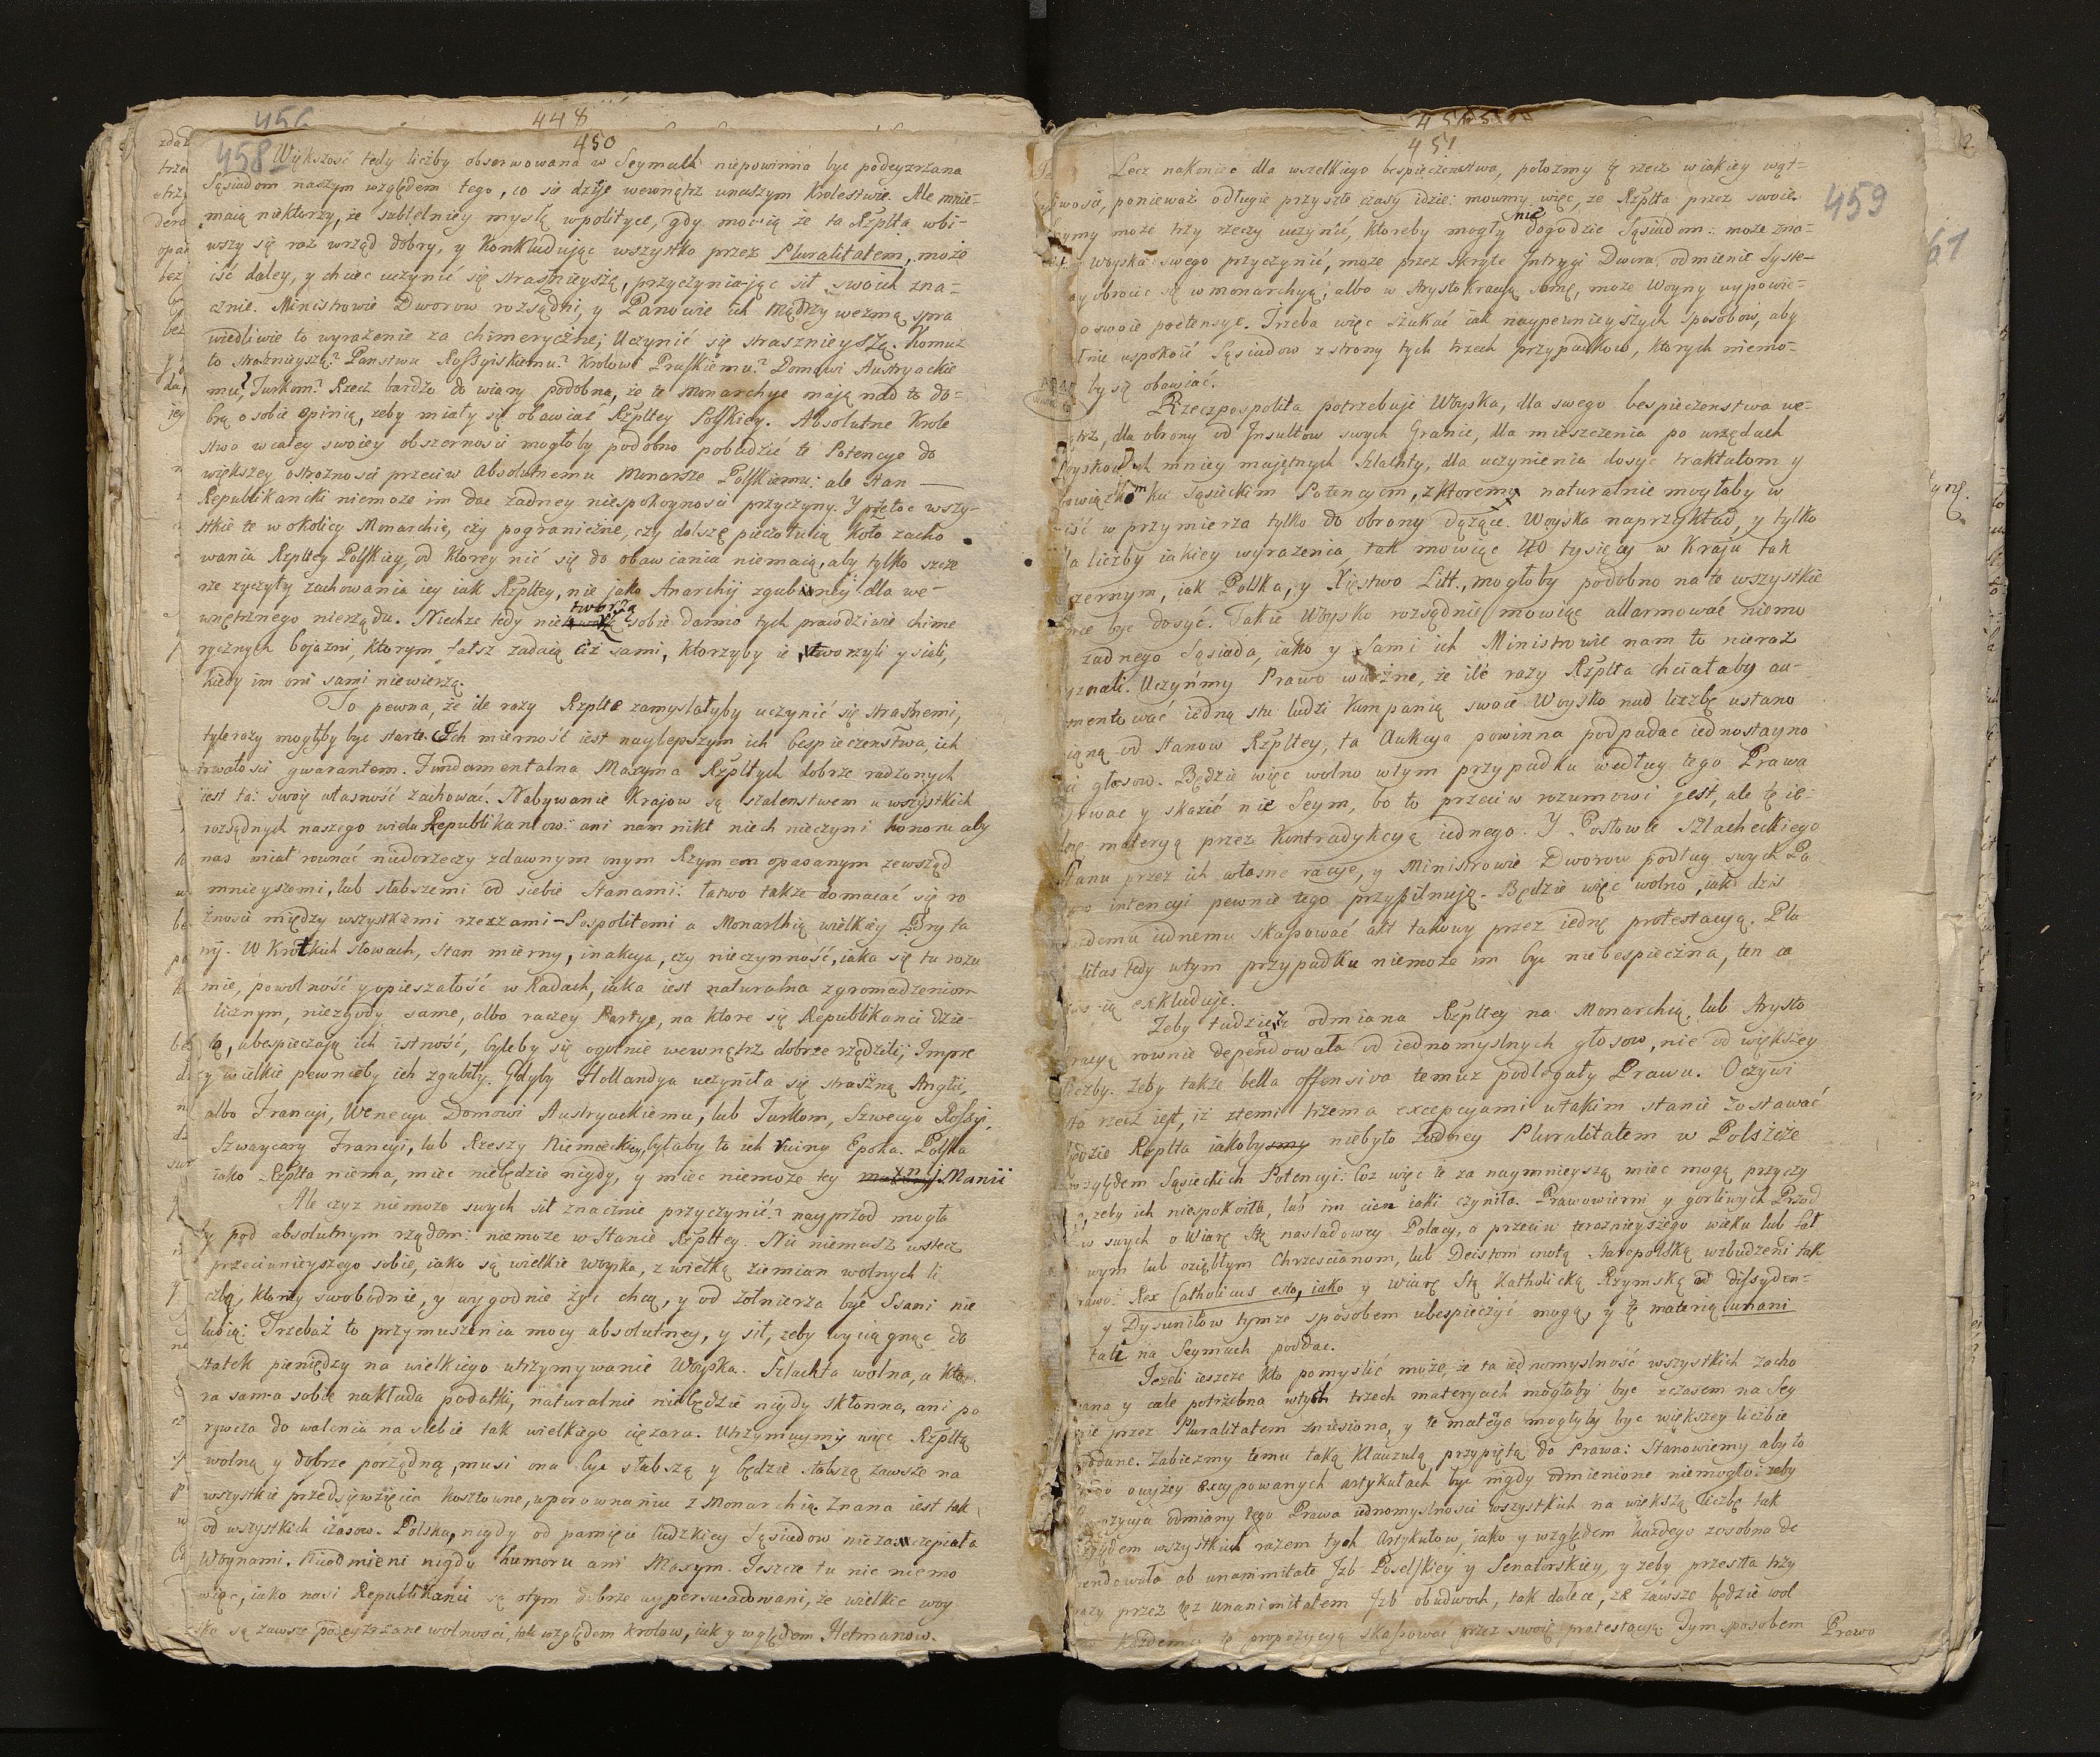 456
448
450
458
Większość tedy liczby obserwowana w Seymach niepowinna byc podeyzrzana
Sąsiadom naszym względem tego, co się dzije wewnątrz unaszym Krolestwie. Ale mnie-
maią niektorzy, że subtelniey myslą wpolityce, gdy mowią ze ta Rzplta wbi-
wszy się raz wrząd dobry, y konkludując wszystko przez Pluralitatem, może
iść daley, y chcieć uczynić się strasznieyszą, przyczyniając sił swoich zna-
cznie. Ministrowie Dworow rozsądni, y Panowie ich Mądrzy wezmą spra
wiedliwie to wyrażenie za chimeryczne; Uczynić się strasznieyszą. Komuz
to strasznieyszą? Panstwu Rossyiskiemu? Krolowi Pruskiemu? Domowi Austryackie
mu? Turkom? Rzecz bardzo do wiary podobna, że te Monarchye mają nad to do-
brą o sobie opinią, zeby miały się obawiać Rzpltey Polskiey. Absolutne Krole
stwo wcałey swoiey obszernosci mogłoby podobno pobudzić te Potencye do
większey ostrożnosci przeciw absolutnemu Monarsze Polskiemu: ale Stan
Republikancki niemoze im dac żadney niespokoynosci przyczyny. Y przetoc wszy-
stkie te w okolicy Monarchie, czy pograniczne, czy dalsze pieczołuią koło zacho
wania Rzpltey Polskiey, od ktorey nic się do obawiania niemaią, aby tylko szcze
rze zyczyły zachowania iey iak Rzpltey, nie jako Anarchij zgubioney dla we-
wnętrznego nierządu. Niechze tedy nie tworzą sobie darmo tych prawdziwie chime
rycznych bojazni, ktorym fałsz zadaią ciż sami, ktorzyby ie tworzyli y siali,
kiedy im oni sami niewierzą.
To pewna, że ile razy Rzplte zamyslałyby uczynić się strasznemi,
tyle razy mogłyby byc starte. Ich mierność iest naylepszym ich bespieczenstwa, ich
trwałosci gwarantem. Fundamentalna Maxyma Rzpltych dobrze radzonych
iest ta: swoię własność zachować. Nabywanie Krajow są szalenstwem u wszystkich
rozsądnych naszego wieku Republikantow: ani nam nikt niech nieczyni honoru aby
nas miał rownać niedorzeczy zdawnym onym Rzymem opasanym zewsząd
mnieyszemi, lub słabszemi od siebie Stanami: łatwo także domacać się ro
żnosci między wszystkiemi rzeczami-Pospolitemi a Monarchią wielkiey Brytа
nij. W krotkich słowach, stan mierny, inakcya, czy nieczynność, iaka się tu rozu
mie, powolność y opieszałość w Radach, iaka iest naturalna zgromadzeniom
licznym, niezgody same, albo raczey Partye, na ktore się Republikanci dzie-
lą, ubespieczają ich istność, byleby się ogolnie wewnątrz dobrze rządzili; Impre
zy wielkie pewnieby ich zgubiły. Gdyby Hollandya uczyniła się straszną Anglii,
albo Francyi, Wenecya Domowi Austryackiemu, lub Turkom, Szwecya Rossyi,
Szwaycary Francyi, lub Rzeszy Niemieckiey, byłaby to ich ruiny Epoka. Polska
iako Rzplta niema, miec niebędzie nigdy, y miec niemoże tey Manii
Ale czyz niemoze swych sił znacznie przyczynić? nayprzod mogła
by pod absolutnym rządem: niemoże w Stanie Rzpltey. Nic niemasz wstecz
przeciwnieyszego sobie, iako są wielkie woyska, z wielką ziemian wolnych li
czbą, ktorzy swobodnie, y wygodnie żyć chcą, y od żołnierza być Ssani nie
lubią: Trzebaż to przymuszenia mocy absolutney, y sił, zeby wyciągnąc do
statek pieniędzy na wielkiego utrzymywanie Woyska. Szlachta wolna, a kto
ra sama sobie nakłada podatki, naturalnie niebędzie nigdy skłonna, ani po
rywcza do walenia na siebie tak wielkiego ciężaru. Utrzymuymy więc Rzpltą
wolną y dobrze porządną, musi ona byc słabszą y będzie słabszą zawsze na
wszystkie przedsięwzięcia kosztowne, w porownaniu z Monarchią. Znana iest tak
od wszystkich czasow. Polska, nigdy od pamięci ludzkiey Sąsiadow niezaczepiała
Woynami. Nieodmieni nigdy humoru ani Maxym. Jeszcze tu nic niemo
więc, iako nasi Republikanci są otym dobrze wyperswadowani, że wielkie woy
ska są zawsze podeyzrzane wolnosci, tak względem krolow, iak y względem Hetmanow.
451
459
61
Lecz nakoniec dla wszelkiego bespieczenstwa, położmy tę rzecz w iakiey wąt-
liwosci, ponieważ odługie przyszłe czasy idzie: mowmy więc, ze Rzplta przez swoie
ymy moze trzy rzeczy uczynić, ktoreby mogły nie dogodzic Sąsiadom: moze zna-
Woyska swego przyczynić, może przez skryte Intrygi Dwora, odmienić Syste-
ay obrocic się w monarchyą, albo w Arystokracyą samę, może Woyny wypowie-
o swoie pretensye. Trzeba więc szukać iak naypewnieyszych sposobow, aby
łnie uspokoić Sąsiadow z strony tych trzech przypadkow, ktorych niemo-
by się obawiać.
Rzeczpospolita potrzebuje Woyska, dla swego bespieczenstwa we-
ątrz, dla obrony od Insultow swych Granic, dla mieszczenia po urzędach
oyskowych mniey majętnych Szlachty, dla uczynienia dosyc traktatom y
owiązkom ku Sąsieckim Potencyom, z ktoremi naturalnie mogłaby w
iść w przymierza tylko do obrony dążące. Woyska naprzykład, y tylko
la liczby iakiey wyrażenia, tak mowiąc 40 tysięcy w Kraju tak
zernym, iak Polska, y Xięstwo Litt., mogłoby podobno na te wszystkie
nce byc dosyć. Takie Woysko rozsądnie mowiąc allarmować niemo
żadnego Sąsiada, iako y Sami ich Ministrowie nam to nieraz
yznali. Uczyńmy Prawo ważne, że ilé razy Rzplta chciałaby au-
mentować iedną stu ludzi Kompanią swoie Woysko nad liczbę ustano
ioną od Stanow Rzpltey, ta Aukcya powinna podpadac iednostayno
ci głosow. Będzie więc wolno wtym przypadku według tego Prawa
wać y skazić nie Seym, bo to przeciw rozumowi jest, ale tę ie-
dnę materyą przez Kontradykcyą iednego. Y Posłowie Szlacheckiego
Stanu przez ich własne racye, y Ministrowie Dworow podług swych Pa
now intencyi pewnie tego przypilnują. Będzie więc wolno, iak dzis
ażdemu iednemu skassować akt takowy przez iednę protestacyą. Plu
litas tedy wtym przypadku niemoże im byc niebespieczna, ten ca
sus ią exkluduje.
Zeby tudziesz odmiana Rzpltey na Monarchią, lub Arysto
kracyą rownie dependowała od iednomyslnych głosow, nie od większey
liczby. Zeby także bella offensiva temuz podlegały Prawu. Oczywi
sta rzecz iest, iż ztemi trzema excepcyami wtakim stanie zostawać
będzie Rzplta iakoby niebyło żadney Pluralitatem w Polszcze
względem Sąsieckich Potencyi: Coz więc te za naymnieyszą miec mogą przyczy
, zeby ich niespokoiła, lub im cien iaki czyniła. Prawowierni y gorliwych Przod
w swych o Wiarę Stą nasladowcy Polacy, a przeciw teraznieyszego wieku lub fał
wym lub oziębłym Chrzescianom, lub Deistom cnotą Staropolską wzbudzeni tak
rawo: Rex Catholicus esto, iako y Wiarę Stą Katholicką Rzymską od dissyden-
y Dysunitow tymze sposobem ubespieczyć mogą, y tę materią unani
tati na Seymach poddac.
Jezeli ieszcze kto pomyslić może, że ta iednomyslność wszystkich zacho
ana y cale potrzebna wtych trzech materyach mogłaby byc zczasem na Sey
mie przez Pluralitatem zniesiona, y te materye mogłyby byc większey liczbie
oddane. Zabiezmy temu taką Klauzulą przypiętą do Prawa: Stanowiemy aby to
o wyżey excypowanych artykułach byc nigdy odmienione niemogło: zeby
ozycya odmiany tego Prawa iednomyslnosci wszystkich na większą liczbę tak
zględem wszystkich razem tych Artykułow, iako y względem każdego zosobna de
pendowała ab unanimitate Izb Poselskiey y Senatorskiey, y zeby przeszła trzy
razy przez tęz unanimitatem Izb obudwoch, tak dalece, że zawsze będzie wol
no każdemu tę propozycyą skassować przez swoię protestacyą. Tym sposobem Prawo